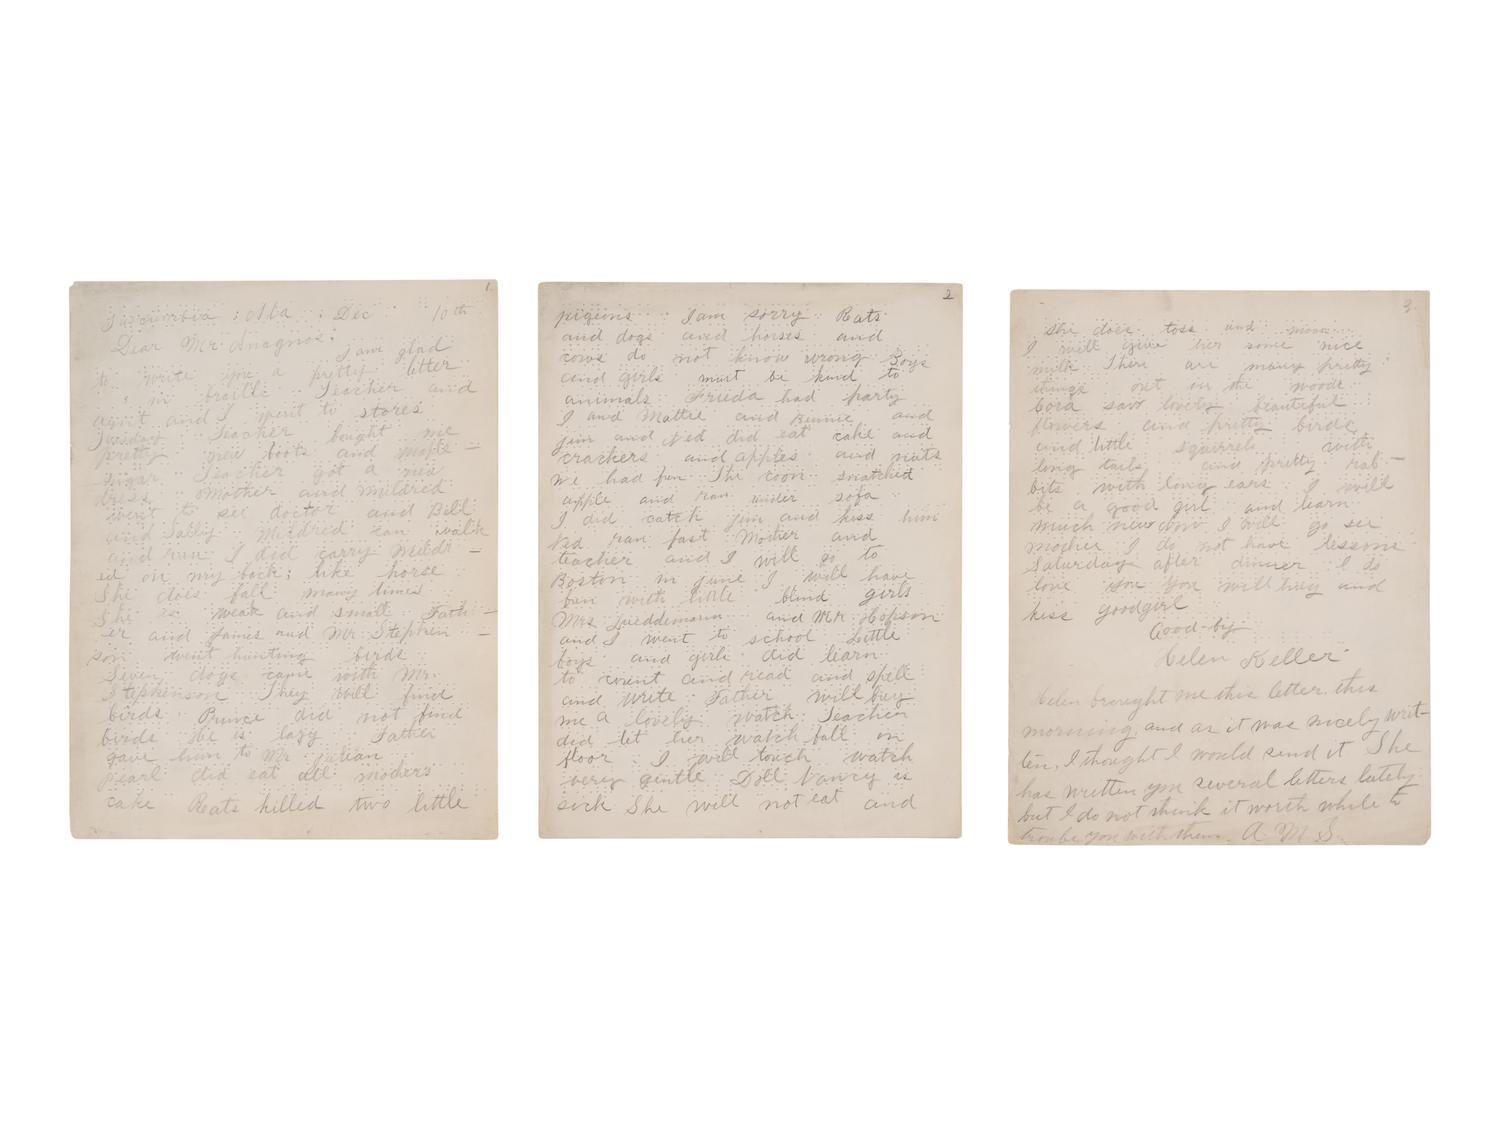 1
Tuscumbia : Ala : Dec 10th
Dear Mr. Anagnos:
I am glad
to write you a pretty letter
in braille Teacher and
aunt and I went to stores
Tuesday Teacher bought me
pretty new boots and maple-
sugar Teacher got a new
dress Mother and mildred
went to see doctor and Bill
and Sally Mildred can walk
and run I did carry Mildr-
ed on my back; like horse
She does fall many times
She is weak and small Fath-
er and James and Mr. Stephen-
son went hunting birds
Seven dogs came with Mr.
Stephenson They will find
birds Prince did not find
birds He is lazy Father
gave him to Mr Julian
Pearl did eat all mothers
cake Rats killed two little
2
pigeons I am sorry Rats
and dogs and horses and
cows do not know wrong Boys
and girls must be kind to
animals Frieda had party
I and Mattie and Bennie and
Jim and Ned did eat cake and
crackers and apples and nuts
We had fun The coon snatched
apple and ran under sofa
I did catch Jim and kiss him
Ned ran fast Mother and
teacher and I will go to
Boston in June I will have
fun with little blind girls
Mrs and Mr Hopson
and I went to school Little
boys and girls did learn
to count and read and spell
and write Father will buy
me a lovely watch Teacher
did let her watch fall on
floor I will touch watch
very gentle Doll Nancy is
sick She will not eat and
3
she does toss and moan
I will give her some nice
milk There are many pretty
things out in the woods
Cora saw lovely beautiful
flowers and pretty birds
and little squirrels with
long tails and pretty rab-
bits with long ears I will
be a good girl and learn
much new now I will go see
mother I do not have lessons
Saturday after dinner I do
love you You will hug and
kiss good girl
Good-by
Helen Keller
Helen brought me this letter this
morning, and as it was nicely writ-
ten, I thought I would send it She
has written you several letters lately
but I do not think it worth while to
trouble you with them. A. M. S.